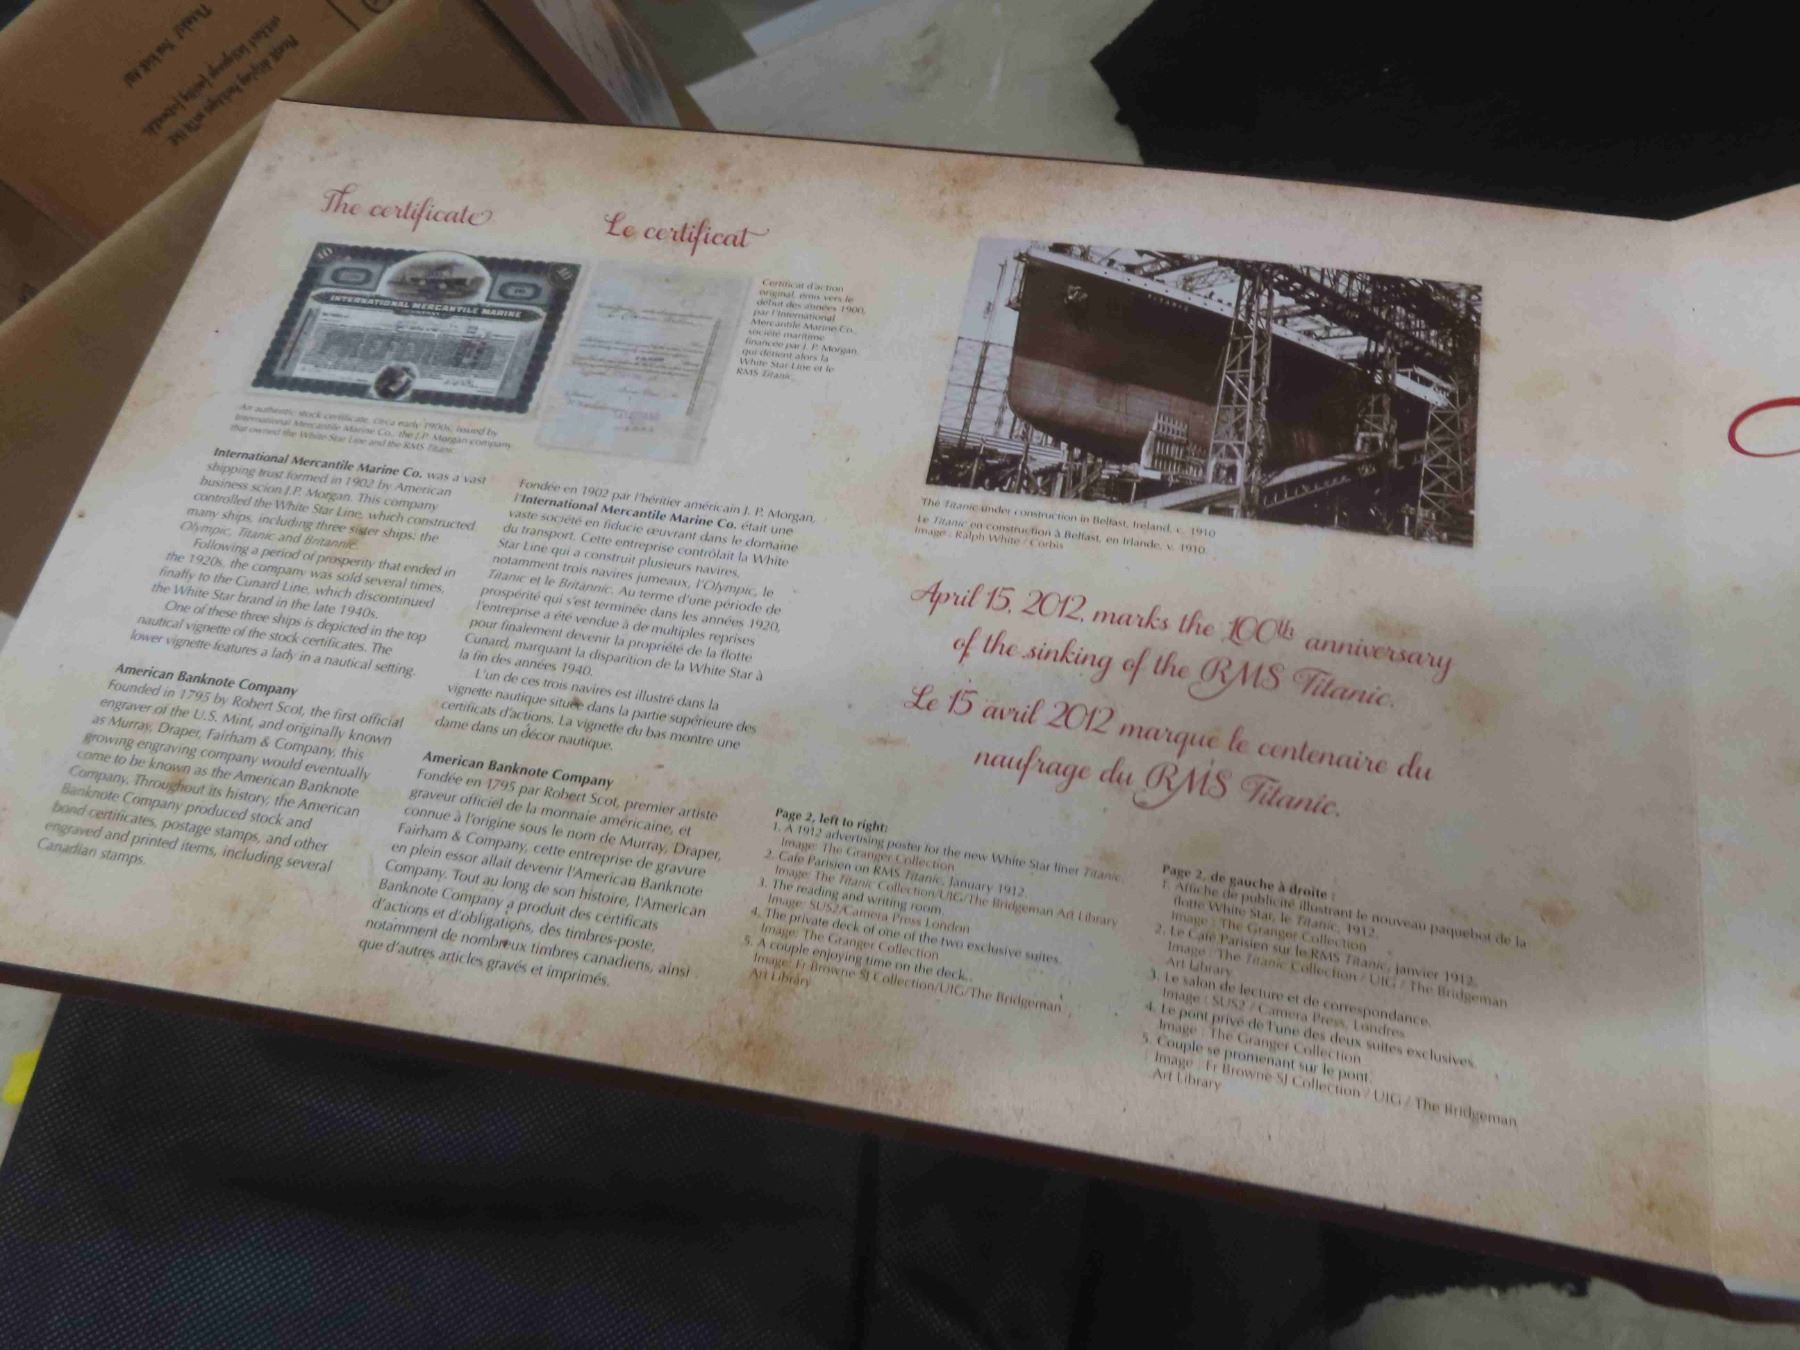 The certificate
10
10
INTERNATIONAL MERCANTILE MARINE
COMPANY
An authentic stock certificate, circa early 1900s, issued by
International Mercantile Marine Co., the J.P. Morgan company
that owned the White Star Line and the RMS Titanic.
International Mercantile Marine Co. was a vast
shipping trust formed in 1902 by American
business scion J.P. Morgan. This company
controlled the White Star Line, which constructed
many ships, including three sister ships: the
Olympic, Titanic and Britannic.
Following a period of prosperity that ended in
the 1920s, the company was sold several times,
finally to the Cunard Line, which discontinued
the White Star brand in the late 1940s.
One of these three ships is depicted in the top
nautical vignette of the stock certificates. The
lower vignette features a lady in a nautical setting.
American Banknote Company
Founded in 1795 by Robert Scot, the first official
engraver of the U.S. Mint, and originally known
as Murray, Draper, Fairham & Company, this
growing engraving company would eventually
come to be known as the American Banknote
Company. Throughout its history, the American
Banknote Company produced stock and
bond certificates, postage stamps, and other
engraved and printed items, including several
Canadian stamps.
Le certificat
Certificat d'action
original, émis vers le
début des années 1900,
par l'International
Mercantile Marine Co.,
société maritime
financée par J. P. Morgan,
qui détient alors la
White Star Line et le
RMS Titanic.
Fondée en 1902 par l'héritier américain J. P. Morgan,
l'International Mercantile Marine Co. était une
vaste société en fiducie œuvrant dans le domaine
du transport. Cette entreprise contrôlait la White
Star Line qui a construit plusieurs navires,
notamment trois navires jumeaux, l'Olympic, le
Titanic et le Britannic. Au terme d'une période de
prospérité qui s'est terminée dans les années 1920,
l'entreprise a été vendue à de multiples reprises
pour finalement devenir la propriété de la flotte
Cunard, marquant la disparition de la White Star à
la fin des années 1940.
L'un de ces trois navires est illustré dans la
vignette nautique située dans la partie supérieure des
certificats d'actions. La vignette du bas montre une
dame dans un décor nautique.
American Banknote Company
Fondée en 1795 par Robert Scot, premier artiste
graveur officiel de la monnaie américaine, et
connue à l'origine sous le nom de Murray, Draper,
Fairham & Company, cette entreprise de gravure
en plein essor allait devenir l'American Banknote
Company. Tout au long de son histoire, l'American
Banknote Company a produit des certificats
d'actions et d'obligations, des timbres-poste,
notamment de nombreux timbres canadiens, ainsi
que d'autres articles gravés et imprimés.
TITANIC
The Titanic under construction in Belfast, Ireland, c. 1910
Le Titanic en construction à Belfast, en Irlande, v. 1910
Image : Ralph White / Corbis
April 15, 2012, marks the 100th anniversary
of the sinking of the RMS Titanic.
Le 15 avril 2012 marque le centenaire du
naufrage du RMS Titanic.
Page 2, left to right:
1. A 1912 advertising poster for the new White Star liner Titanic.
Image: The Granger Collection
2. Café Parisien on RMS Titanic, January 1912.
Image: The Titanic Collection/UIG/The Bridgeman Art Library
3. The reading and writing room.
Image: SUS2/Camera Press London
4. The private deck of one of the two exclusive suites.
Image: The Granger Collection
5. A couple enjoying time on the deck.
Image: Fr Browne SJ Collection/UIG/The Bridgeman
Art Library
Page 2, de gauche à droite :
1. Affiche de publicité illustrant le nouveau paquebot de la
flotte White Star, le Titanic, 1912.
Image : The Granger Collection
2. Le Café Parisien sur le RMS Titanic, janvier 1912.
Image : The Titanic Collection / UIG / The Bridgeman
Art Library
3. Le salon de lecture et de correspondance.
Image : SUS2 / Camera Press, Londres
4. Le pont privé de l'une des deux suites exclusives.
Image : The Granger Collection
5. Couple se promenant sur le pont.
Image : Fr Browne SJ Collection / UIG / The Bridgeman
Art Library